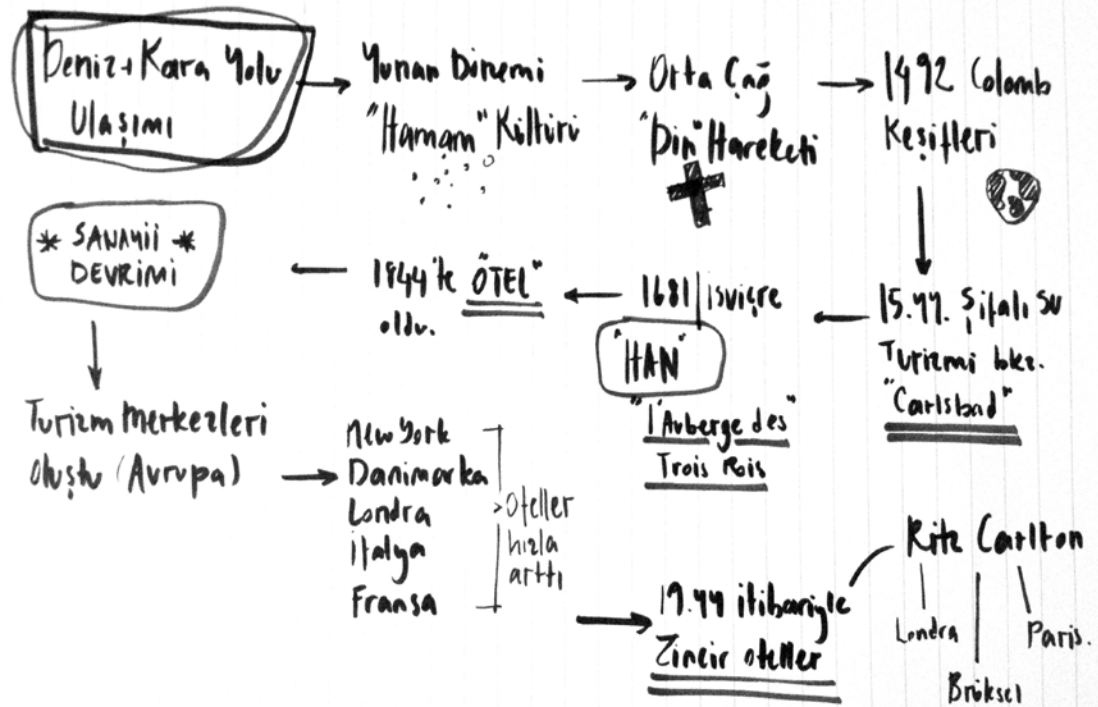 Deniz + Kara Yolu
Ulaşımı
Yunan Dönemi
"Hamam" Kültürü
Orta Çağ
"Din" Hareketi
1492 Colomb
Keşifleri
15.yy. Şifalı su
Turizmi bkz.
"Carlsbad"
1681 İsviçre
"HAN"
"l'Auberge des"
Trois Rois
1844'te "OTEL"
oldu.
* SANAYİİ *
DEVRİMİ
Turizm Merkezleri
oluştu (Avrupa)
New York
Danimarka
Londra
İtalya
Fransa
Oteller
hızla
arttı
19.yy itibariyle
Zincir oteller
Ritz Carlton
Londra
Brüksel
Paris.